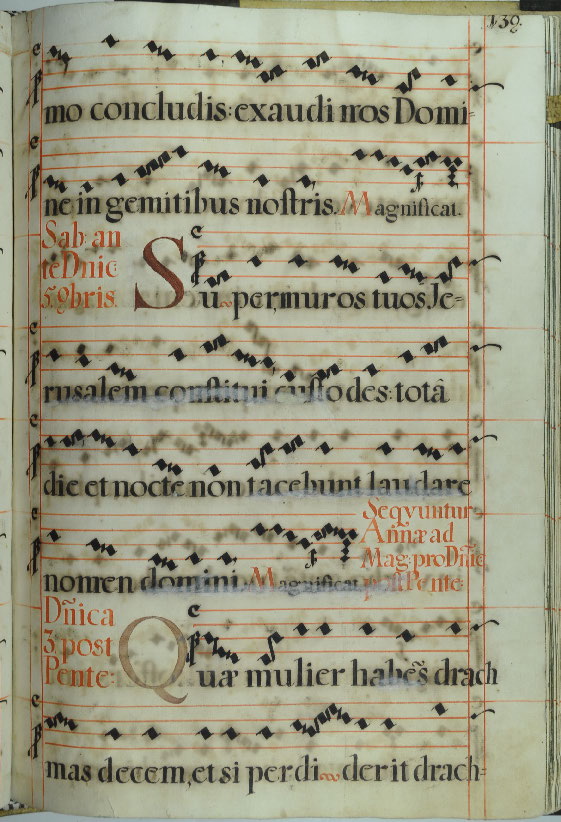 139
mo concludis: exaudi nr̄os Domi-
ne in gemitibus nostris. Magnificat.
Sab: an
te Dn̄ic
5. 9bris
Su per muros tuos Je-
rusalem constitui custodes: totâ
die et nocte non tacebunt laudare
nomen domini. Magnificat.
Seqvuntur
An̄næ ad
Mag: pro Dn̄ic
post Pente
Dn̄ica
3 post
Pente:
Quæ mulier habēs drach
mas decem, et si perdi derit drach-